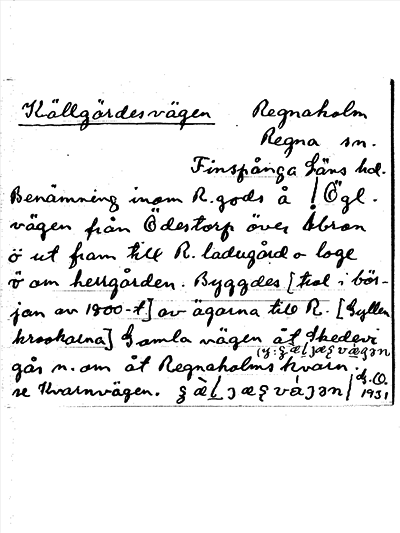 Källgärdesvägen Regnaholm
Regna sn.
Finspånga läns hd.
Benämning inom R. gods å / Ögl.
vägen från Ödestorp över Åbron
ö ut fram till R. ladugård o loge
ö om herrgården. Byggdes [trol i bör-
jan av 1800-t] av ägarna till R. [Gyllen
krookarna] Gamla vägen åt Skedevi
gås n. om åt Regnaholms kvarn.
se Kvarnvägen.
G.O.
1931